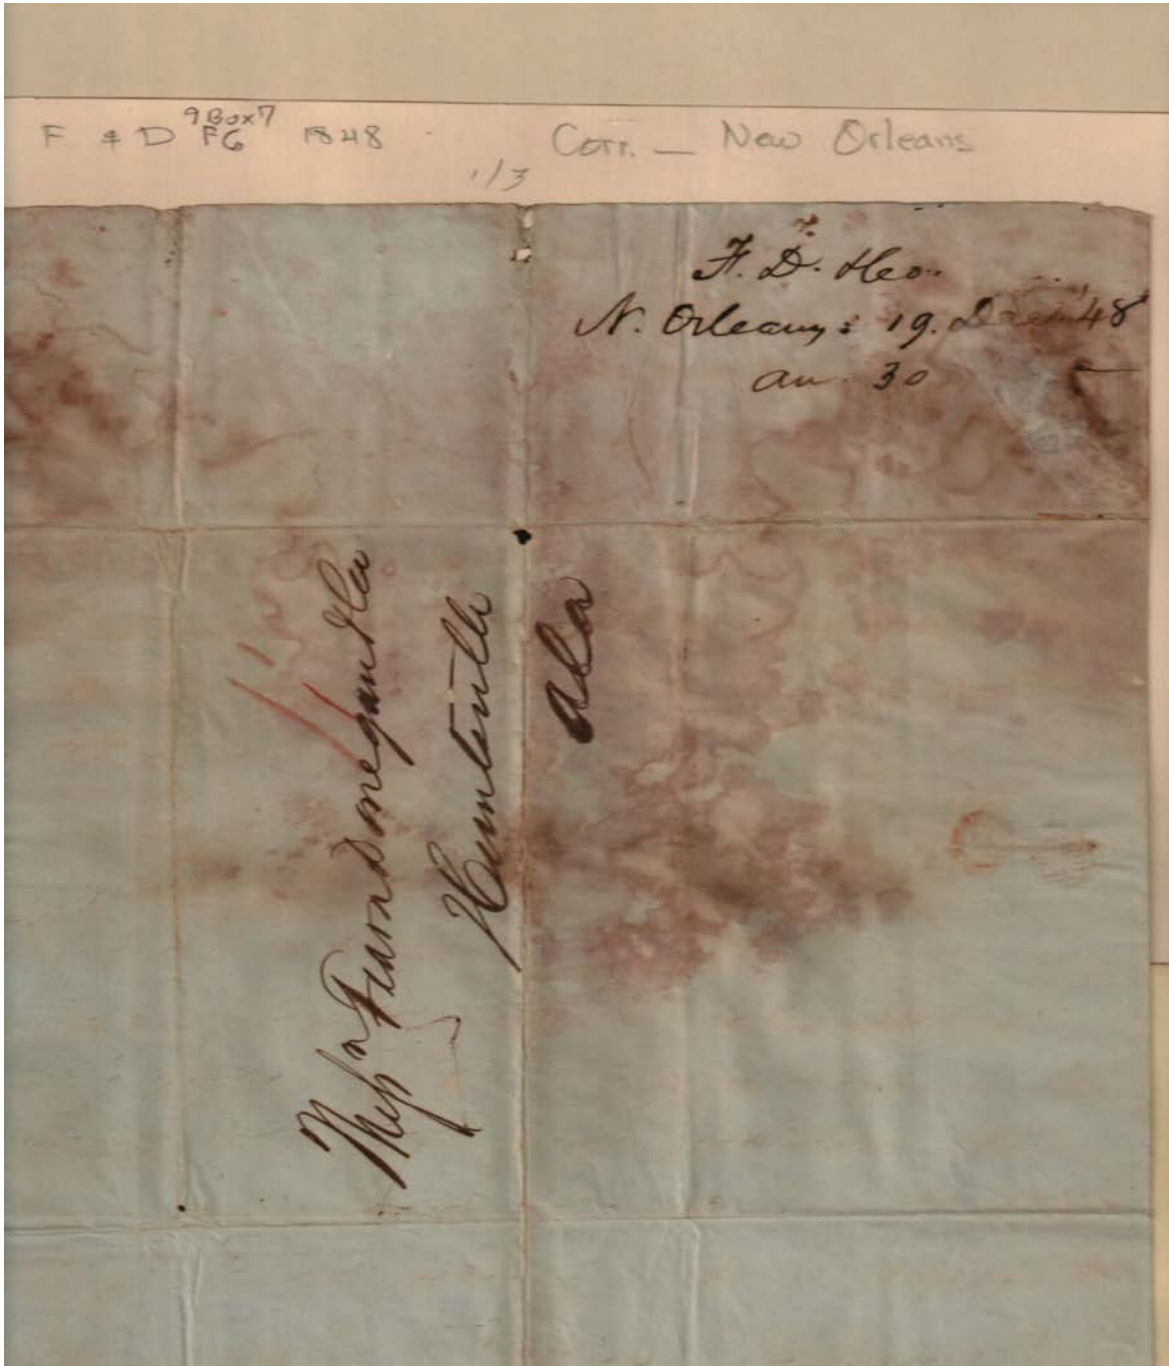 9 Box 7
F & D F6 1848 Corr. — New Orleans
1/3
F. D. & Co.
N. Orleans: 19. Decm 48
an. 30
Messrs Fearn Donegan & Co
Huntsville
Ala